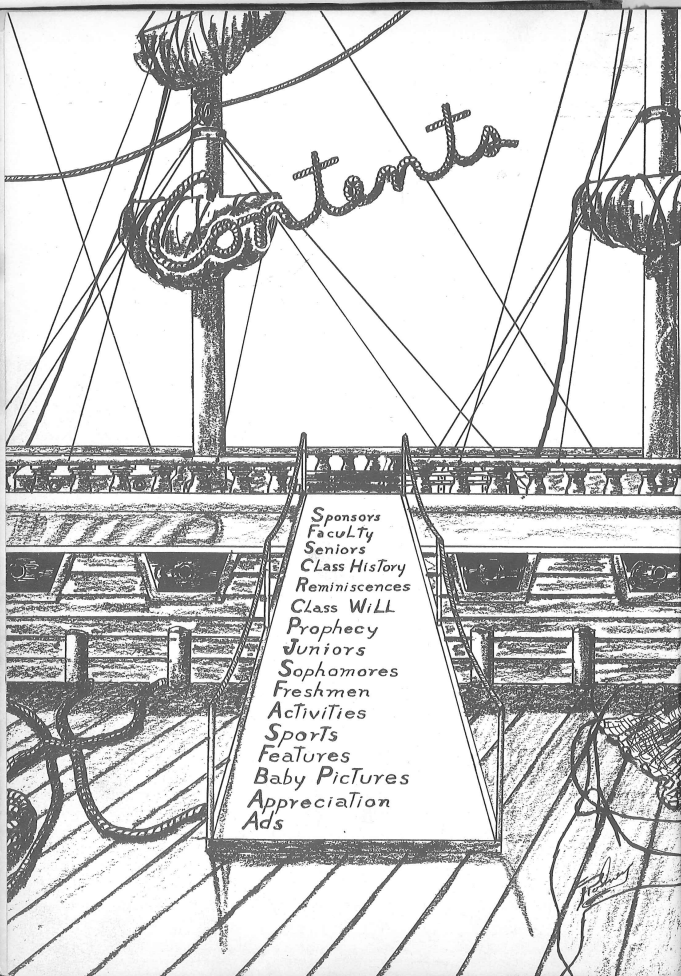 Contents
Sponsors
Faculty
Seniors
Class History
Reminiscences
Class Will
Prophecy
Juniors
Sophomores
Freshmen
Activities
Sports
Features
Baby Pictures
Appreciation
Ads